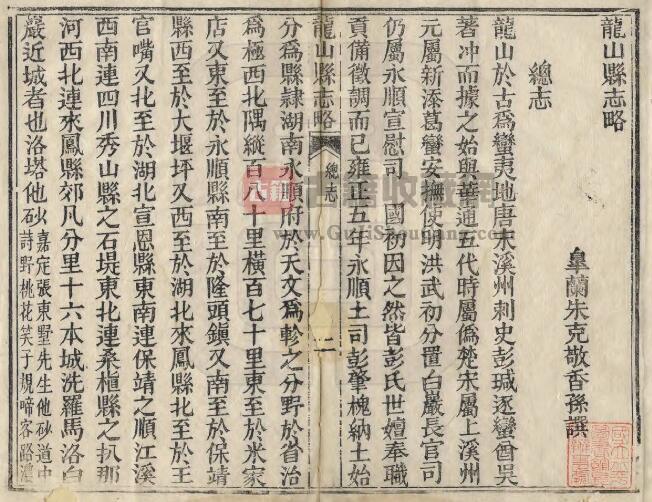 龍山縣志略
臯蘭朱克敬香孫譔
總志
龍山於古爲蠻夷地唐末溪州刺史彭瑊逐蠻酋吳
著冲而據之始與華通五代時屬僞楚宋屬上溪州
元屬新添葛蠻安撫使明洪武初分置白巖長官司
仍屬永順宣慰司 國初因之然皆彭氏世嬗奉職
貢備徵調而已雍正五年永順土司彭肇槐納土始
龍山縣志略
總志
二
分爲縣隸湖南永順府於天文爲軫之分野於省治
爲極西北隅縱百八十里橫百七十里東至於米家
店又東至於永順縣南至於隆頭鎮又南至於保靖
縣西至於大堰坪又西至於湖北來鳳縣北至於王
官嘴又北至於湖北宣恩縣東南連保靖之順江溪
西南連四川秀山縣之石堤東北連桑植縣之扒那
河西北連來鳳縣郊凡分里十六本城洗羅馬洛白
巖近城者也洛塔他砂嘉定張東墅先生他砂道中
詩野桃花笑子規啼客路濃
古籍收藏網
www.GuJiShouCang.com